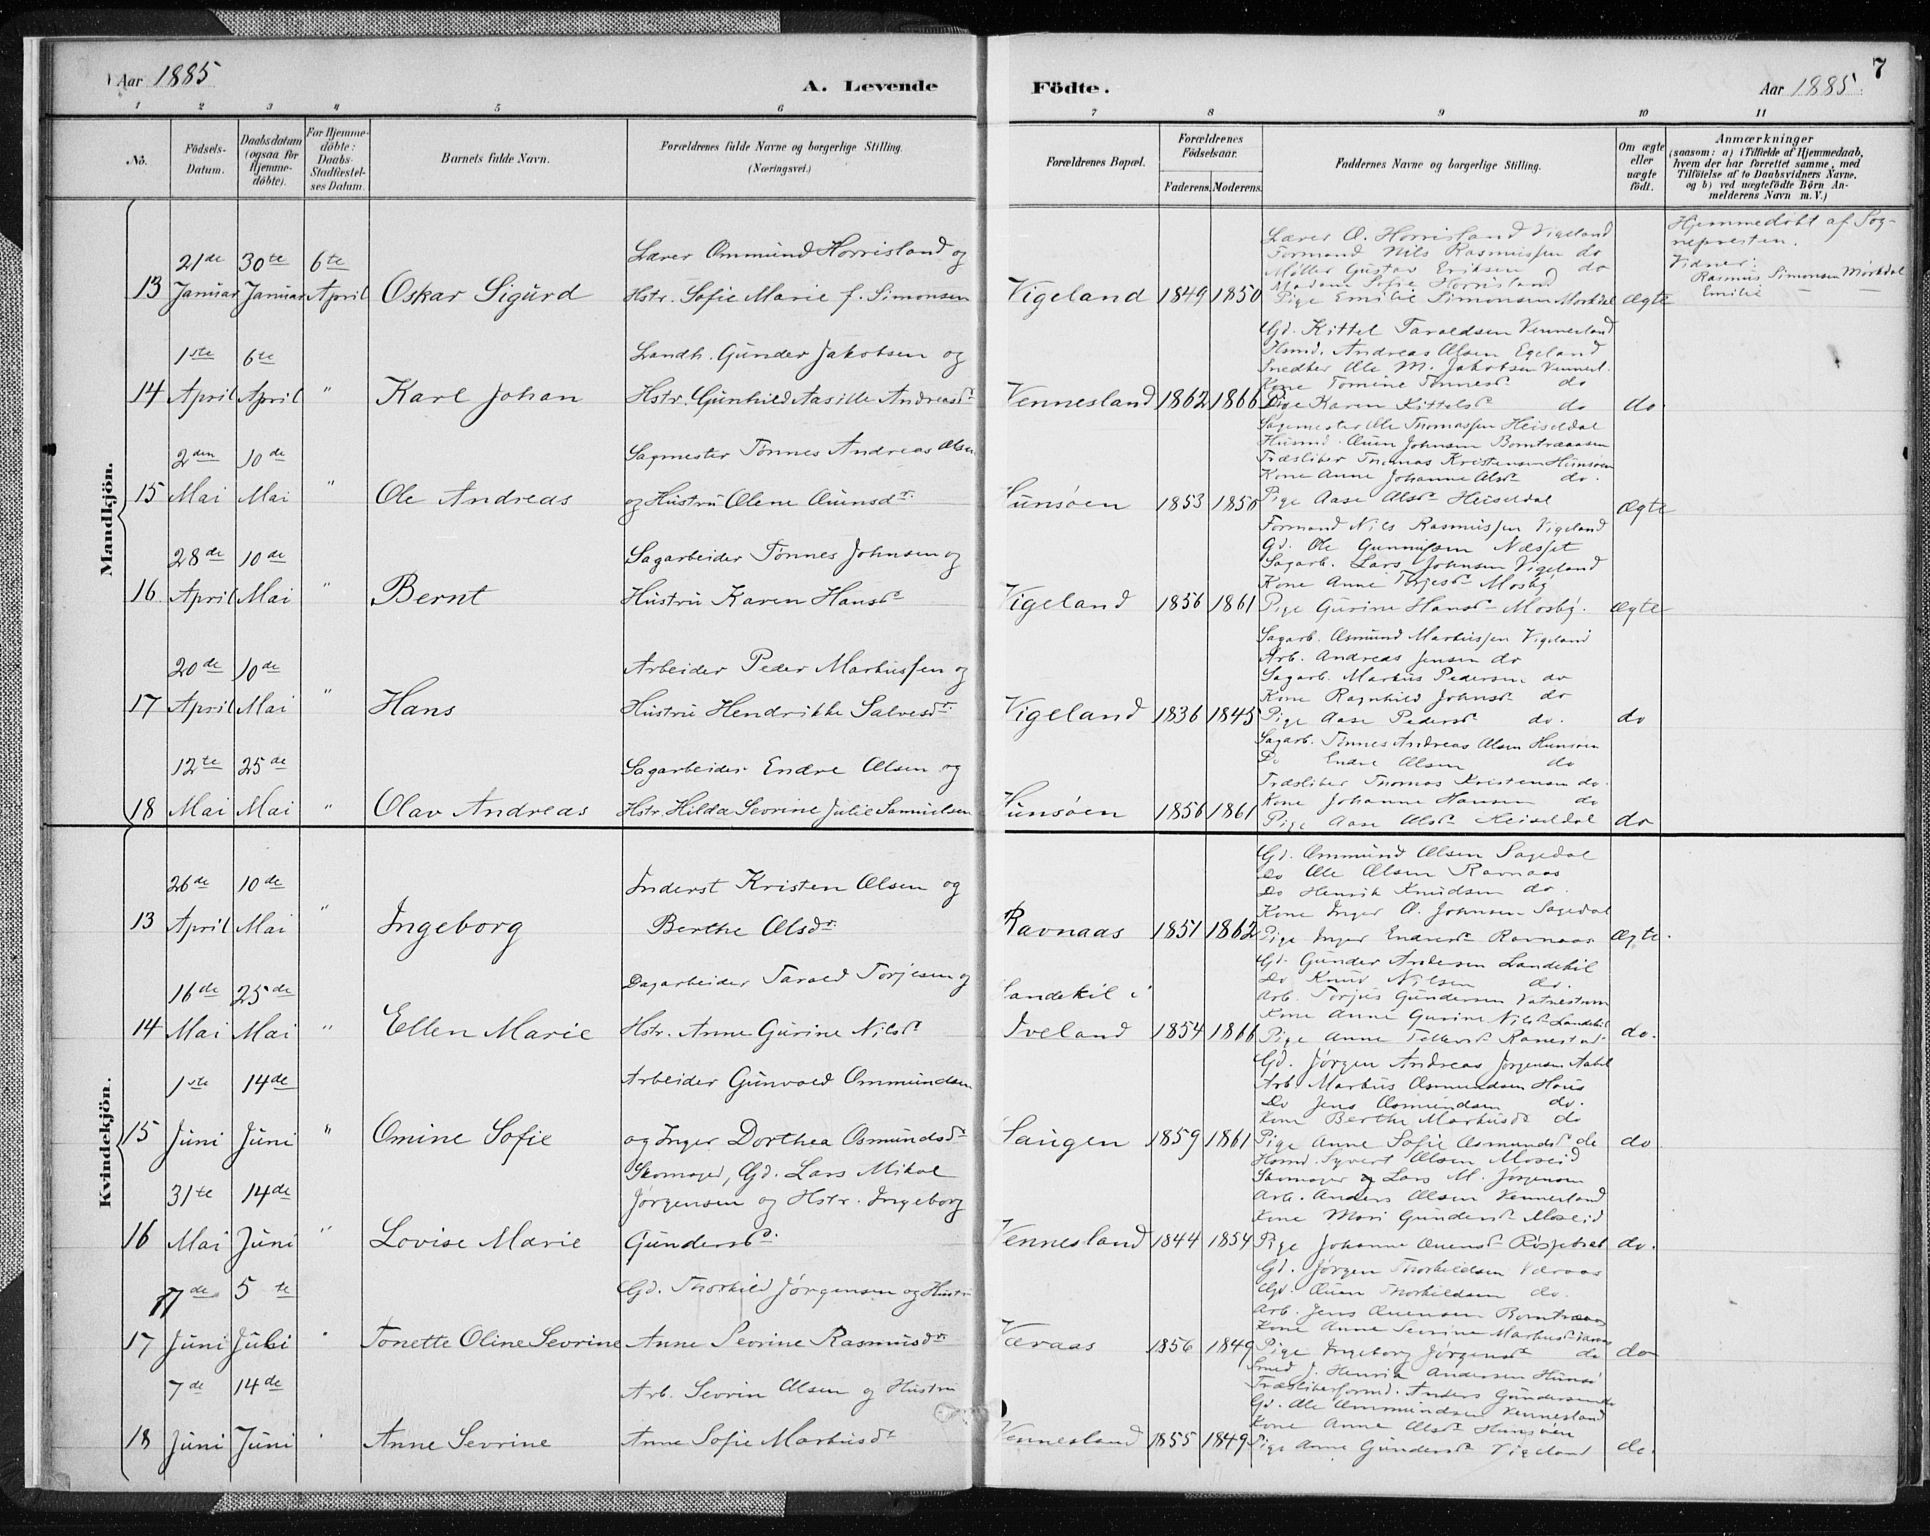 Aar 1885
A. Levende
Födte.
Aar 1885.
7
1 2 3 4 5 6 7 8 9 10 11
No.
Födsels-Datum.
Daabsdatum (ogsaa for Hjemme-döbte).
For Hjemme-döbte: Daabs-Stadfæstel-ses Datum.
Barnets fulde Navn.
Forældrenes fulde Navne og borgerlige Stilling.
(Næringsvei.)
Forældrenes Bopæl.
Forældrenes Födselsaar.
Faderens. Moderens.
Faddernes Navne og borgerlige Stilling.
Om ægte eller uægte födt.
Anmærkninger
(saasom: a) i Tilfælde af Hjemmedaab,
hvem der har forrettet samme, med
Tilföielse af to Daabsvidners Navne,
og b) ved uægtefödte Börn An-
melderens Navn m. V.)
Mandkjön.
13
21de Januar
30te Januar
6te April
Oskar Sigurd
Lærer Ommund Horrisland og
Hstr. Sofie Marie f. Simonsen
Vigeland 1849 1850
Lærer O. Horrisland Vigeland
Formand Nils Rasmussen do
Møller Gustav Eriksen do
Madam Sofie Horrisland
Pige Emilie Simonsen Mørkdal
Ægte
Hjemmedøbt af Sog-
nepresten.
Vidner:
Rasmus Simonsen Mørkdal
Emilie
14
1ste April
6te April
"
Karl Johan
Landh. Gunder Jakobsen og
Hstr. Gunhild Aasille Andreasdr
Vennesland 1862 1866
Gd. Kittel Taraldsen Vennesland
Husmd. Andreas Olsen Egeland
Snedker Ole M. Jakobsen Vennesl.
Kone Tomine Tønnesdr do
Pige Karen Kittelsdr do
do
15
2den Mai
10de Mai
"
Ole Andreas
Sagmester Tønnes Andreas Olsen
og Hustru Olene Ouensdr.
Hunsøen 1853 1850
Sagmester Ole Thomassen Heiseldal
Husmd. Ouen Johnsen Bomtraasen
Træsliber Thomas Kristensen Hunsøen
Kone Anne Johanne Olsdr do.
Pige Aase Olsdr Heiseldal
Ægte
16
28de April
10de Mai
"
Bernt
Sagarbeider Tønnes Johnsen og
Hustru Karen Hansdr
Vigeland 1856 1861
Formand Nils Rasmussen Vigeland
Gd. Ole Gunnufsen Næsset
Sagarb. Lars Johnsen Vigeland
Kone Anne Torjesdr Mosby
Pige Gurine Hansdr Mosby.
Ægte
17
20de April
10de Mai
"
Hans
Arbeider Peder Markussen og
Hustru Hendrikke Salvesdr.
Vigeland 1836 1845
Sagarb. Osmund Markussen Vigeland
Arb. Andreas Jensen do
Sagarb. Markus Pedersen do
Kone Ragnhild Johnsdr do
Pige Aase Pedersdr do.
do
18
12te Mai
25de Mai
"
Olav Andreas
Sagarbeider Endre Olsen og
Hstr. Hilda Sevrine Julie Samuelsen
Hunsøen 1856 1861
Sagarb. Tønnes Andreas Olsen Hunsøen
Do Endre Olsen do
Træsliber Thomas Kristensen do.
Kone Johanne Hansen do
Pige Aase Olsdr Heiseldal
do
Kvindekjön.
13
26de April
10de Mai
"
Ingeborg
Inderst Kristen Olsen og
Berthe Olsdr.
Ravnaas 1851 1862
Gd. Ommund Olsen Sagedal
Do Ole Olsen Ravnaas
Do Henrik Knudsen do.
Kone Inger O. Johnsen Sagedal
Pige Inger Endresdr Ravnaas
Ægte.
14
16de Mai
25de Mai
"
Ellen Marie
Dagarbeider Tarald Torjesen og
Hstr. Anne Gurine Nilsdr
Landekil i
Iveland 1854 1866
Gd. Gunder Andersen Landekil
Do Knud Nilsen do.
Arb. Torjus Gundersen Vatnestrøm
Kone Anne Gurine Nilsdr Landekil
Pige Anne Tellefsdr Ranestad
do.
15
1ste Juni
14de Juni
"
Omine Sofie
Arbeider Gunvald Ommundsen
og Inger Dorthea Osmundsdr
Haugen 1859 1861
Gd. Jørgen Andreas Jørgensen Aabel
Arb. Markus Osmundsen Hous
Do Jens Osmundsen do.
Kone Berthe Markusdr do
Pige Anne Sofie Osmundsdr do
do
16
31te Mai
14de Juni
"
Lovise Marie
Skomager, Gd. Lars Mikal
Jørgensen og Hstr. Ingeborg
Gundersdr.
Vennesland 1844 1854
Husmd. Syvert Olsen Moseid
Skomager Lars M. Jørgensen
Arb. Anders Olsen Vennesland
Kone Mari Gundersdr Moseid
Pige Johanne Ouensdr
do.
17
7de Juni
5te Juli
"
Tonette Oline Sevrine
Gd. Thorkild Jørgensen og Hustru
Anne Sevrine Rasmusdr
Væraas 1856 1849
Gd. Jørgen Thorkildsen Væraas
Gd. Ouen Thorkildsen do.
Arb. Jens Ouensen Bomtraas
Kone Anne Sevrine Markusdr Væraas
Pige Ingeborg Jørgensdr do
do
18
7de Juni
14de Juni
"
Anne Sevrine
Arb. Sevrin Olsen og Hustru
Anne Sofie Markusdr
Vennesland 1855 1849
Smed J. Henrik Andersen Hunsø
Træsliberformd. Anders Gundersen do
Gd. Ole Ommundsen Vennesland
Kone Anne Olsdr Hunsøen
Pige Anne Gundersdr Vigeland
do.